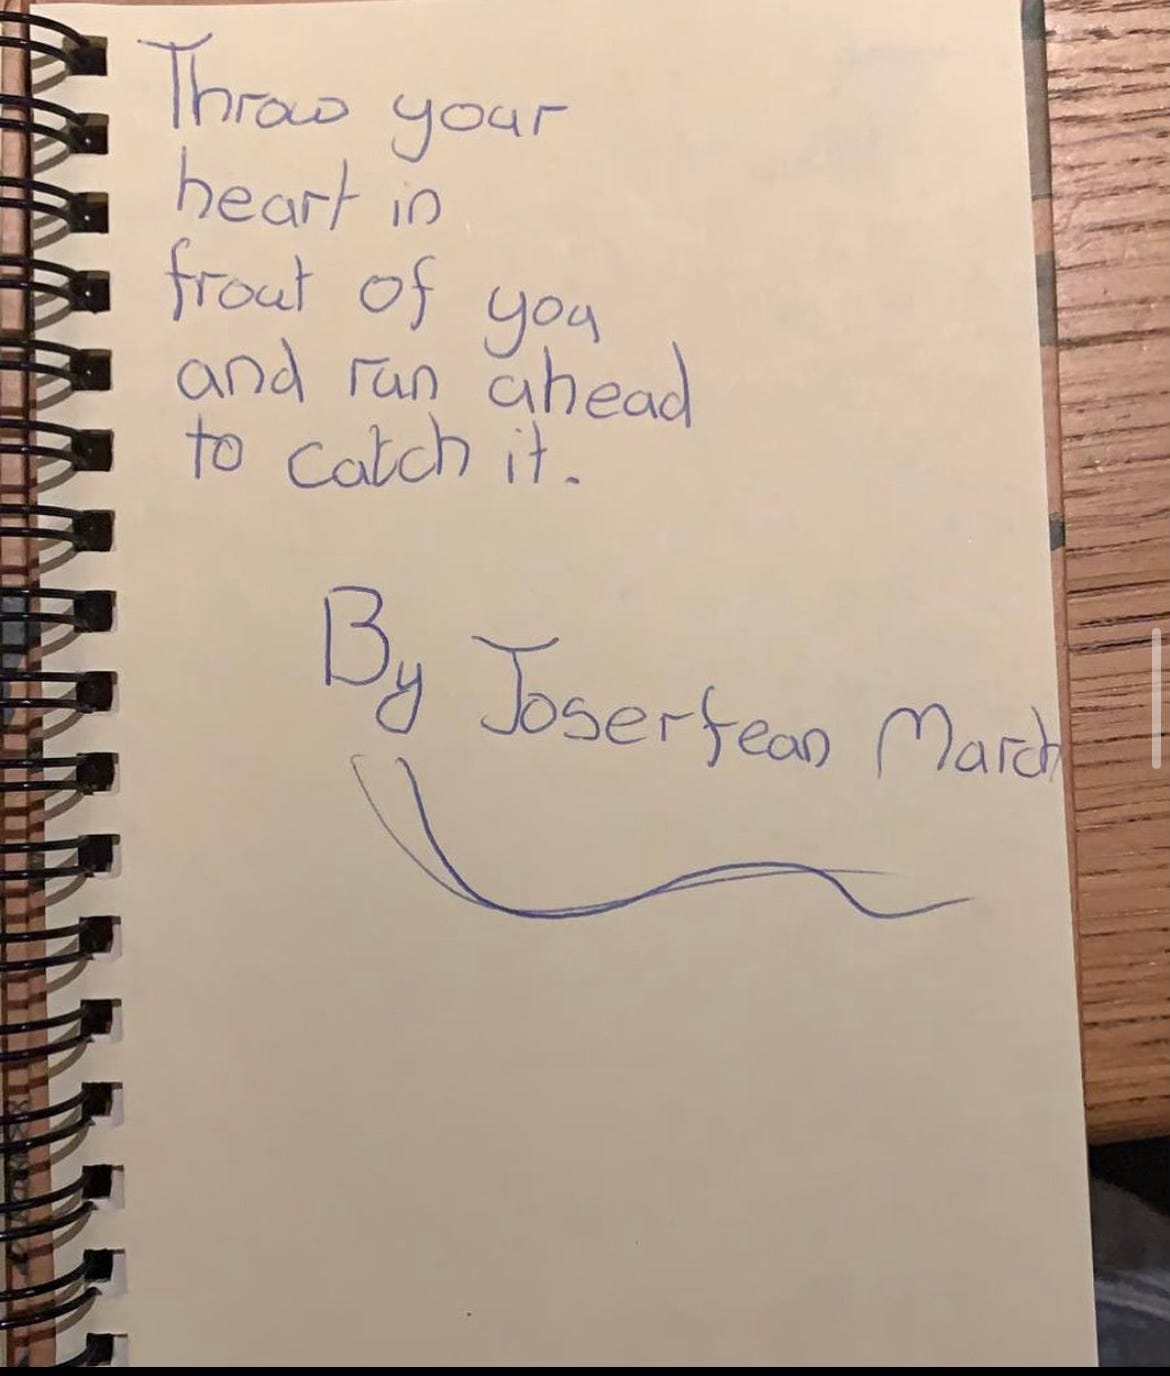 Throw your
heart in
front of you
and run ahead
to catch it.
By Joserfean March